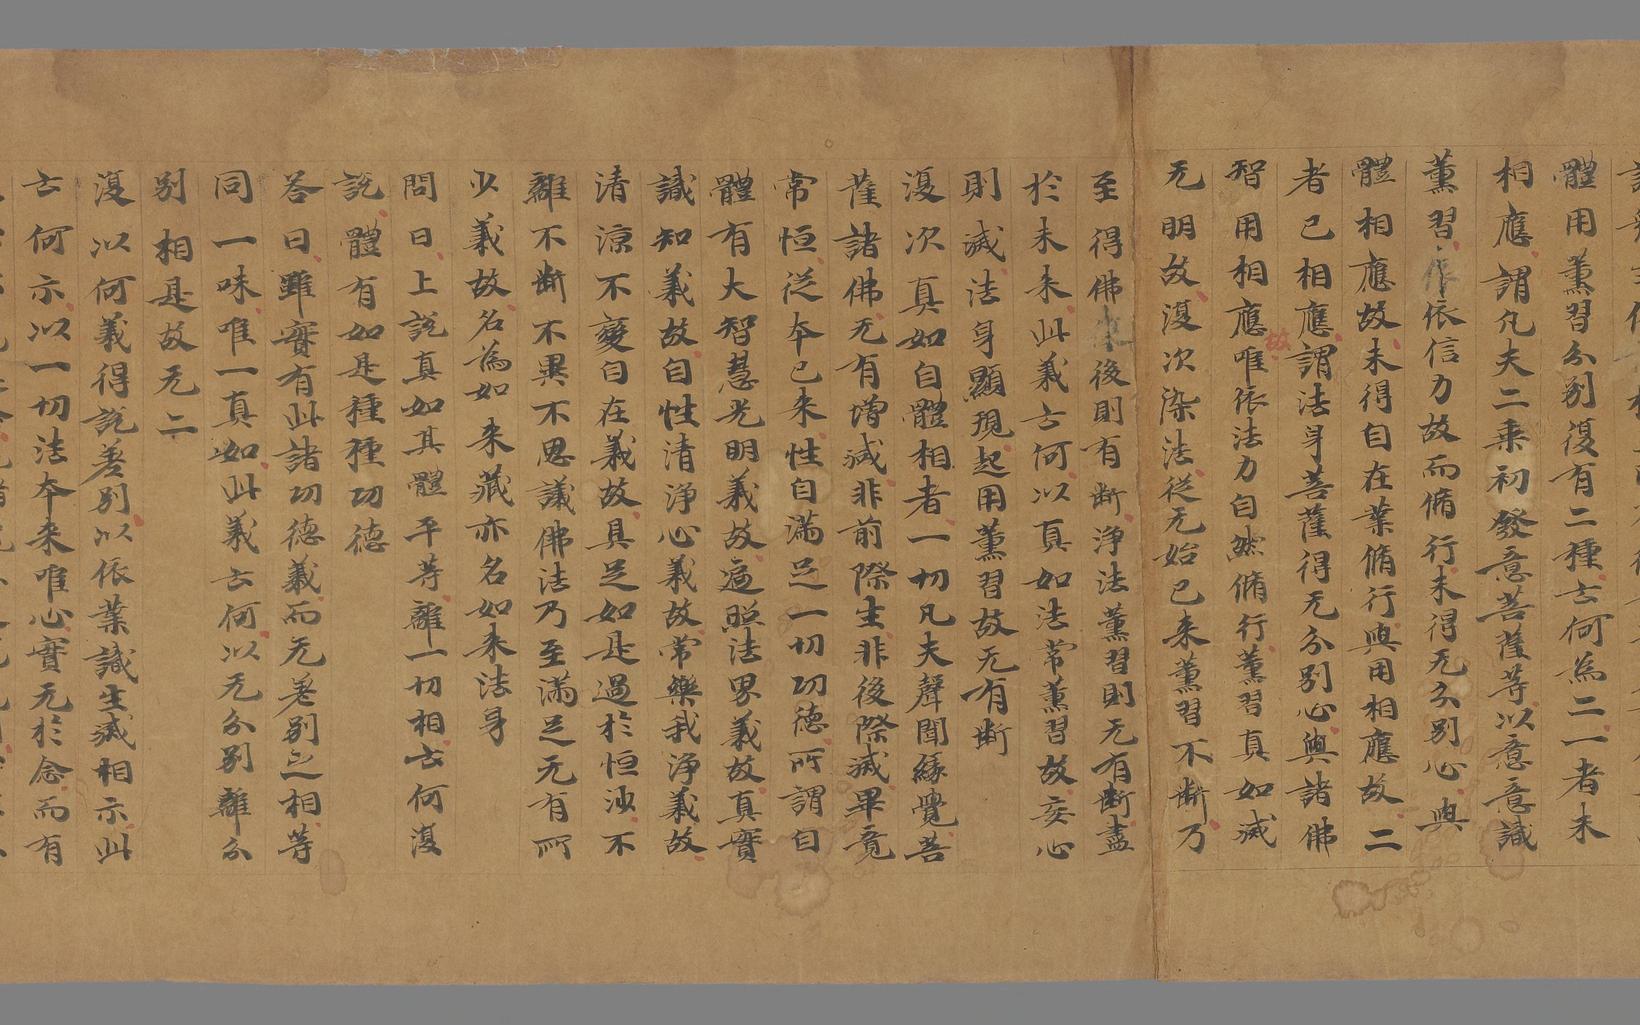 體用薰習分別復有二種云何為二一者未
相應謂凡夫二乘初發意菩薩等以意意識
薰習依信力故而脩行未得无分別心與
體相應故未得自在業脩行與用相應故二
者已相應謂法身菩薩得无分別心與諸佛
智用相應故唯依法力自然脩行薰習真如滅
无明故復次染法從无始已來薰習不斷乃
至得佛後則有斷淨法薰習則无有斷盡
於未來此義云何以真如法常薰習故妄心
則滅法身顯現起用薰習故无有斷
復次真如自體相者一切凡夫聲聞緣覺菩
薩諸佛无有增減非前際生非後際滅畢竟
常恒從本已來性自滿足一切功德所謂自
體有大智慧光明義故遍照法界義故真實
識知義故自性清淨心義故常樂我淨義故
清涼不變自在義故具足如是過於恒沙不
離不斷不異不思議佛法乃至滿足无有所
少義故名為如來藏亦名如來法身
問曰上說真如其體平等離一切相云何復
說體有如是種種功德
答曰雖實有此諸功德義而无差別之相等
同一味唯一真如此義云何以无分別離分
別相是故无二
復以何義得說差別以依業識生滅相示此
云何示以一切法本來唯心實无於念而有